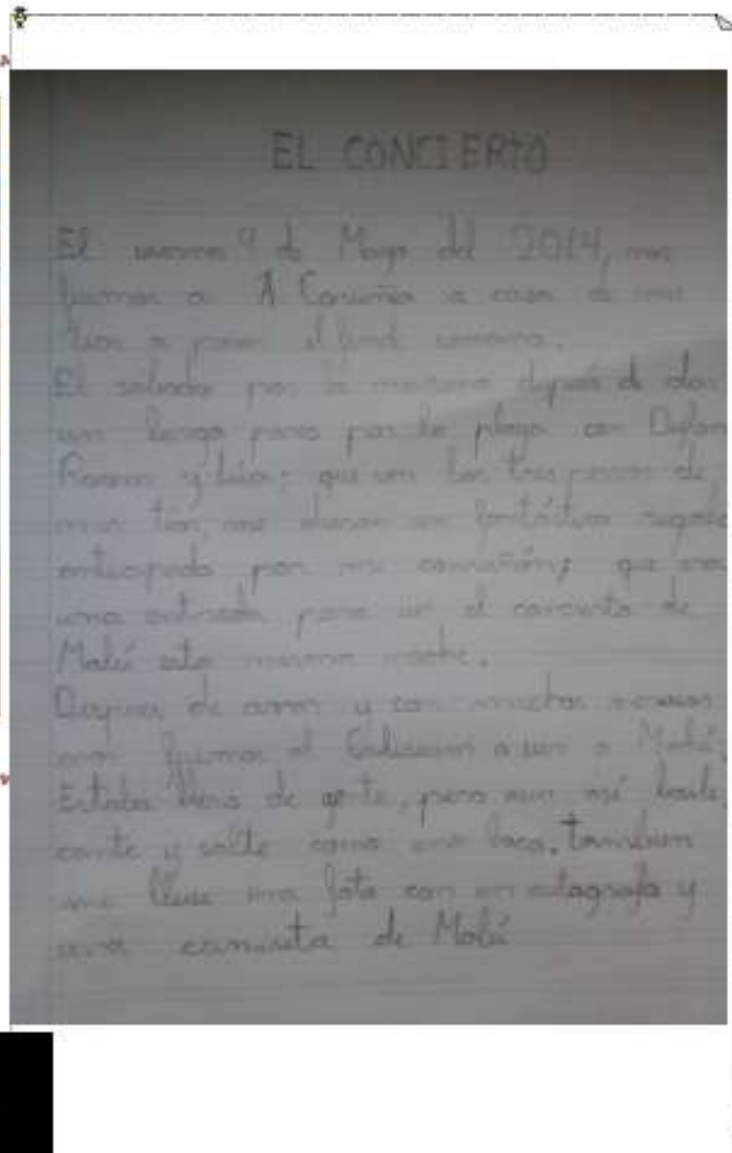 EL CONCIERTO
El viernes 9 de Mayo del 2014, nos
fuimos a A Coruña a casa de mis
tios a pasar el find semana.
El sábado por la mañana después de dar
un largo paseo por la playa con Dylan
y que son los tres perros de
mis tios, me dieron un fantástico regalo
anticipado por mi comunión; que era
una entrada para ir al concierto de
Malú esta misma noche.
Despues de cenar y con muchos nervios
nos fuimos al Coliseum a ver a Malú.
Estaba lleno de gente, pero aun así baile,
cante y salte como una loca. Tambien
me lleve una foto con un autografo y
una camiseta de Malú